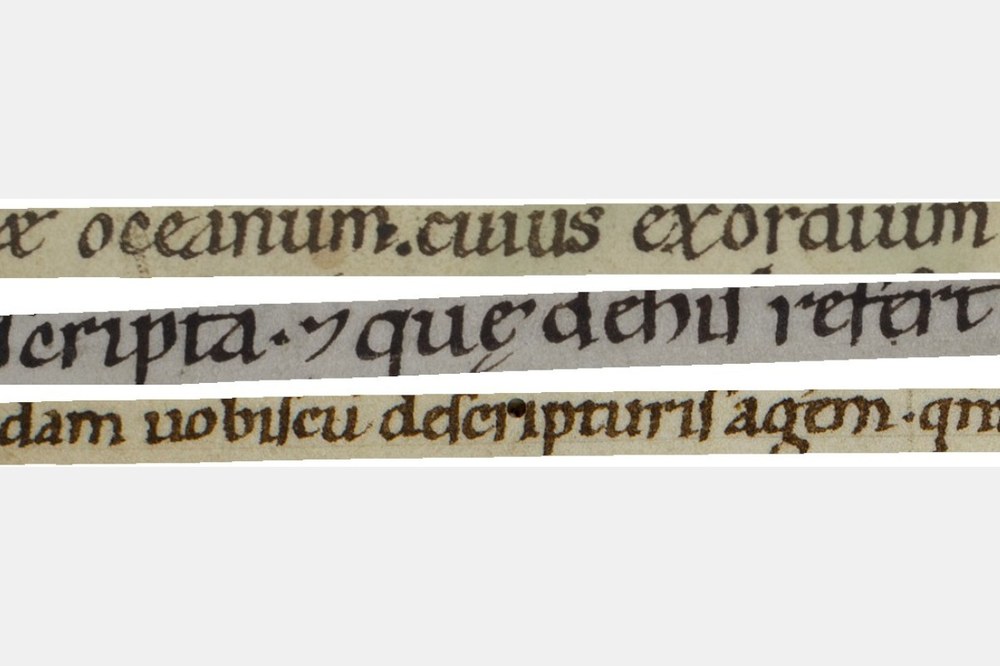 oceanum. cuius exordium
scripta · ⁊ quę dehis refert
dam uobiscū descripturis agem · qm